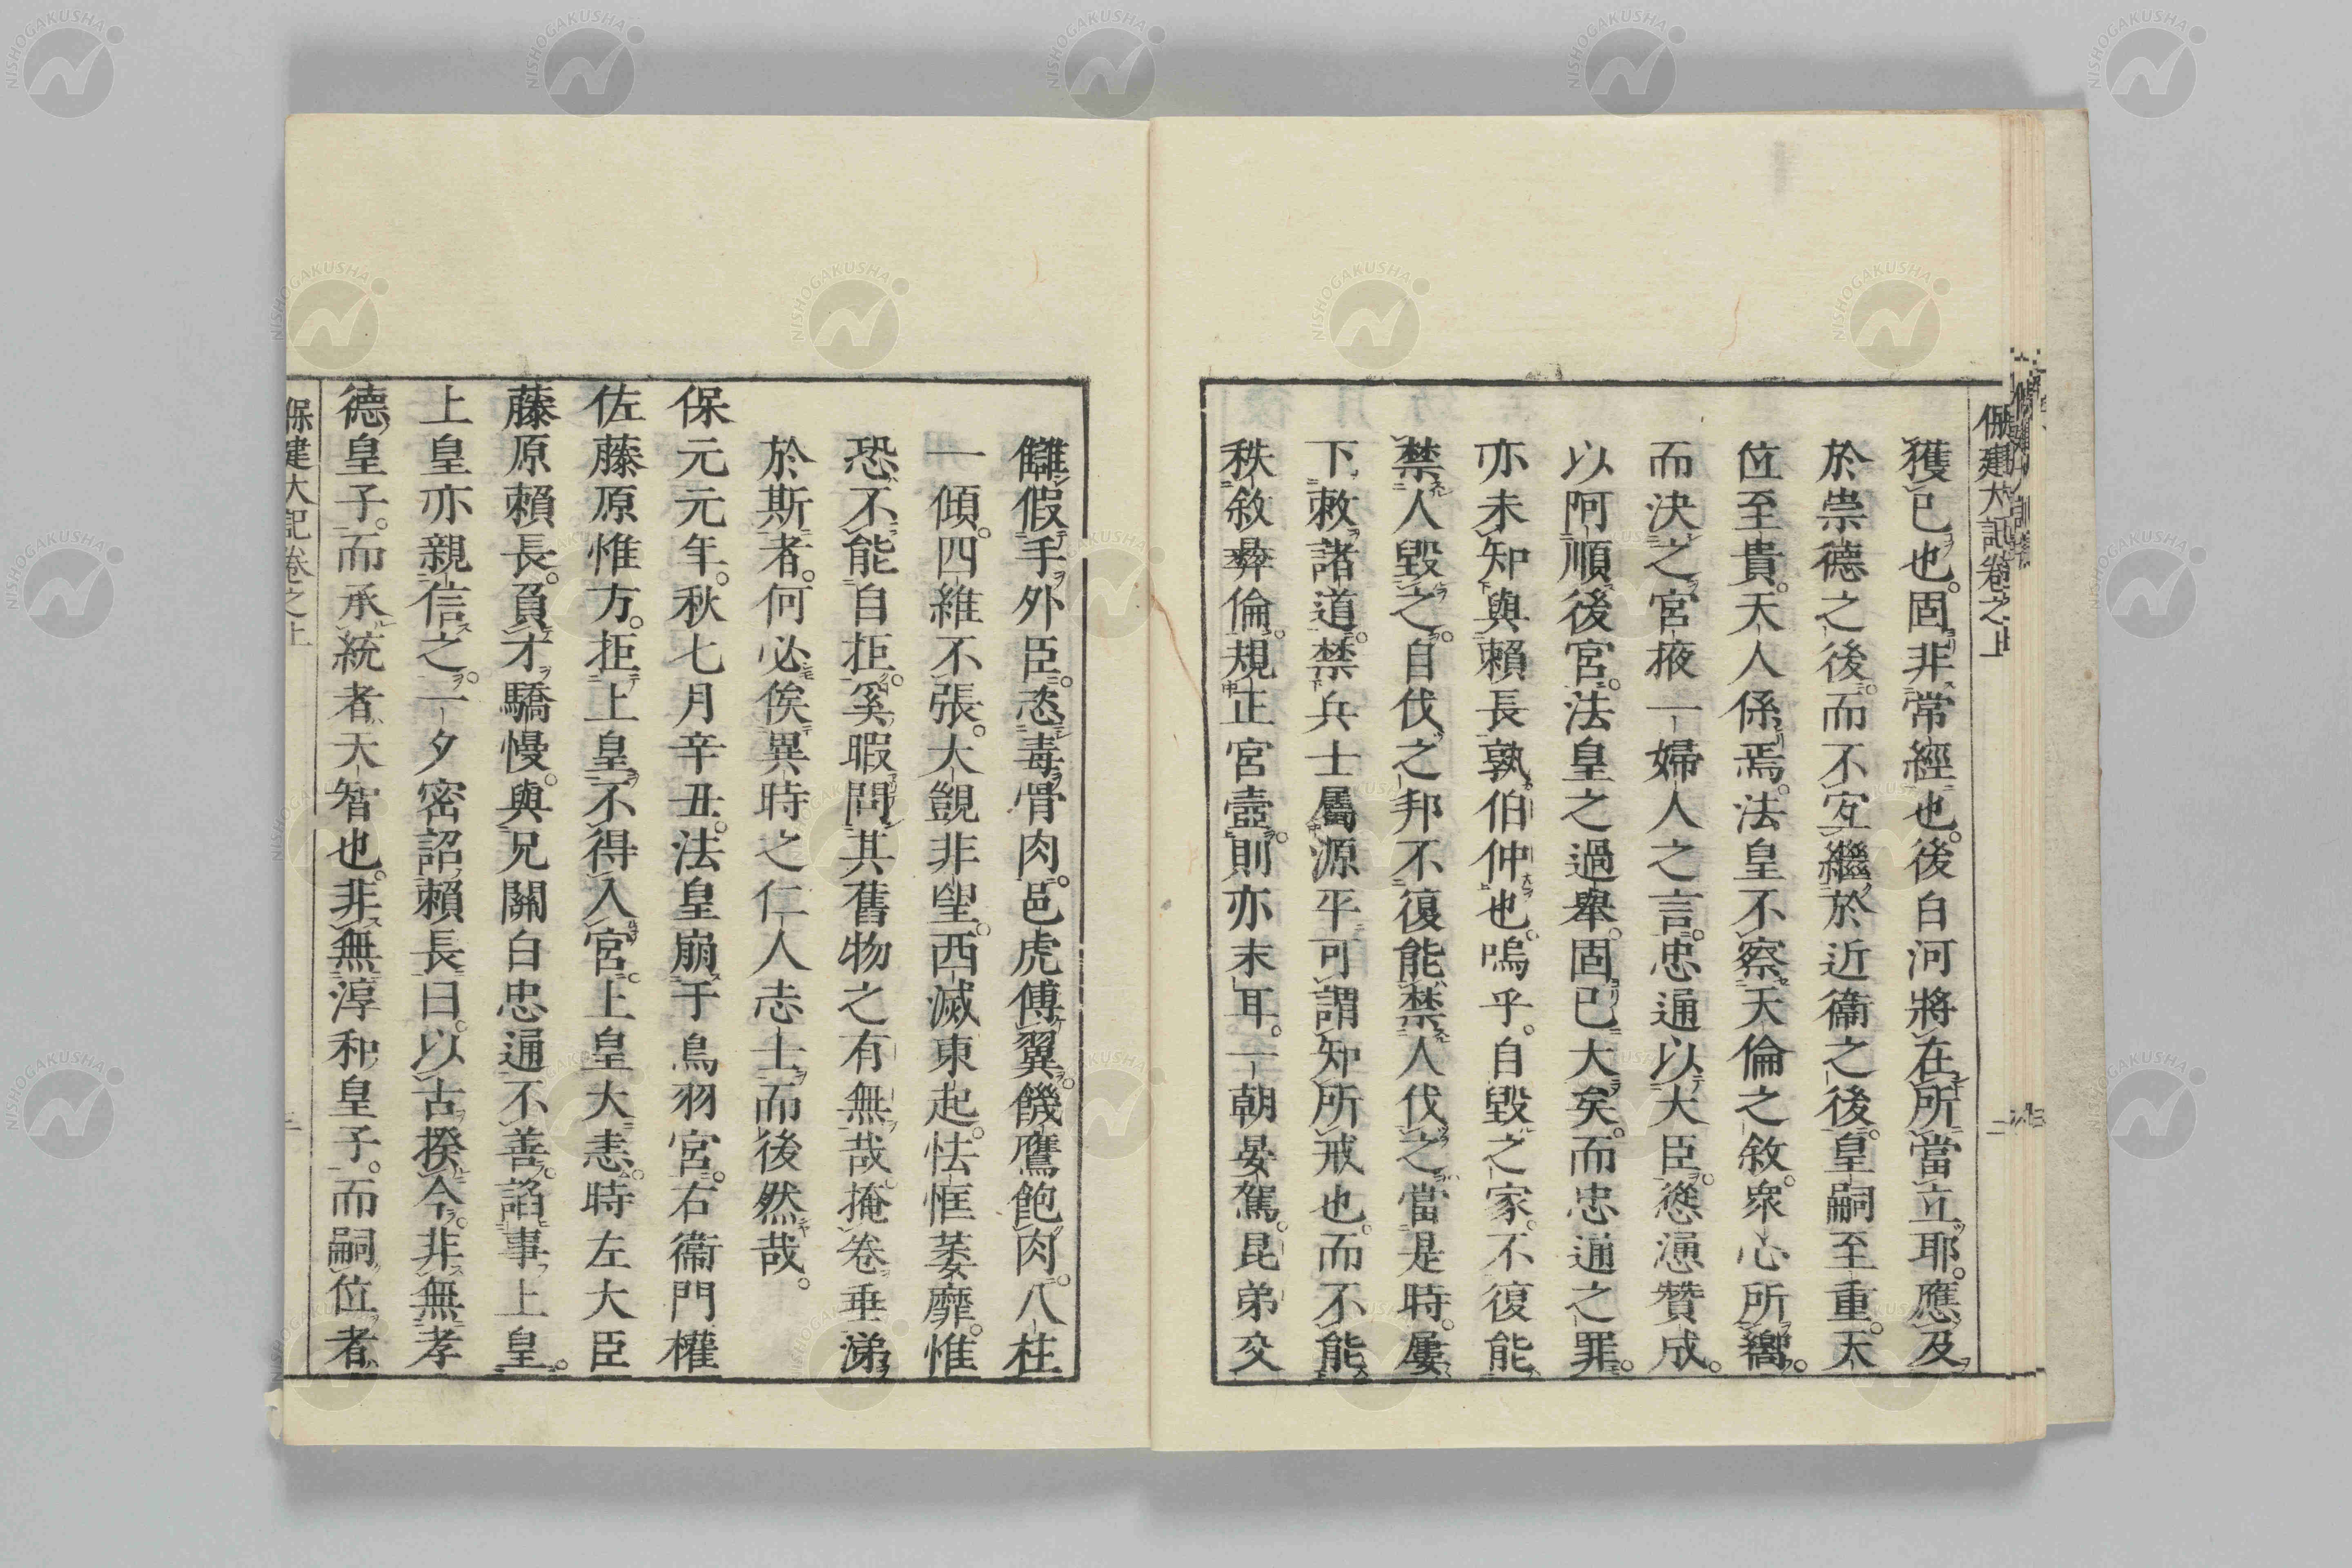 保建大記卷之上
獲已也。固非常經也。後白河將在所當立耶。應及
於崇德之後。而不宜繼於近衞之後。皇嗣至重。天
位至貴。天人係焉。法皇不察天倫之敘。衆心所嚮。
而決之宮掖一婦人之言。忠通以大臣。慫慂贊成。
以阿順後宮。法皇之過擧。固已大矣。而忠通之罪。
亦未知與賴長孰伯仲也。嗚乎。自毀之家。不復能
禁人毀之。自伐之邦。不復能禁人伐之。當是時。屢
下敕諸道。禁兵士屬源平。可謂知所戒也。而不能
秩敘彝倫。規正宮壼。則亦末耳。一朝晏駕。昆弟交
讎。假手外臣。恣毒骨肉。邑虎傅翼。饑鷹飽肉。八柱
一傾。四維不張。大覬非望。西滅東起。怯恇萎靡。惟
恐不能自拒。奚暇問其舊物之有無哉。掩卷垂涕
於斯者。何必俟異時之仁人志士而後然哉。
保元元年。秋七月辛丑。法皇崩于鳥羽宮。右衞門權
佐藤原惟方。拒上皇。不得入宮。上皇大恚。時左大臣
藤原賴長。負才驕慢。與兄關白忠通不善。諂事上皇。
上皇亦親信之。一夕密詔賴長曰。以古揆今。非無孝
德皇子。而承統者。天智也。非無淳和皇子。而嗣位者
保建大記卷之上
二
NISHOGAKUSHA